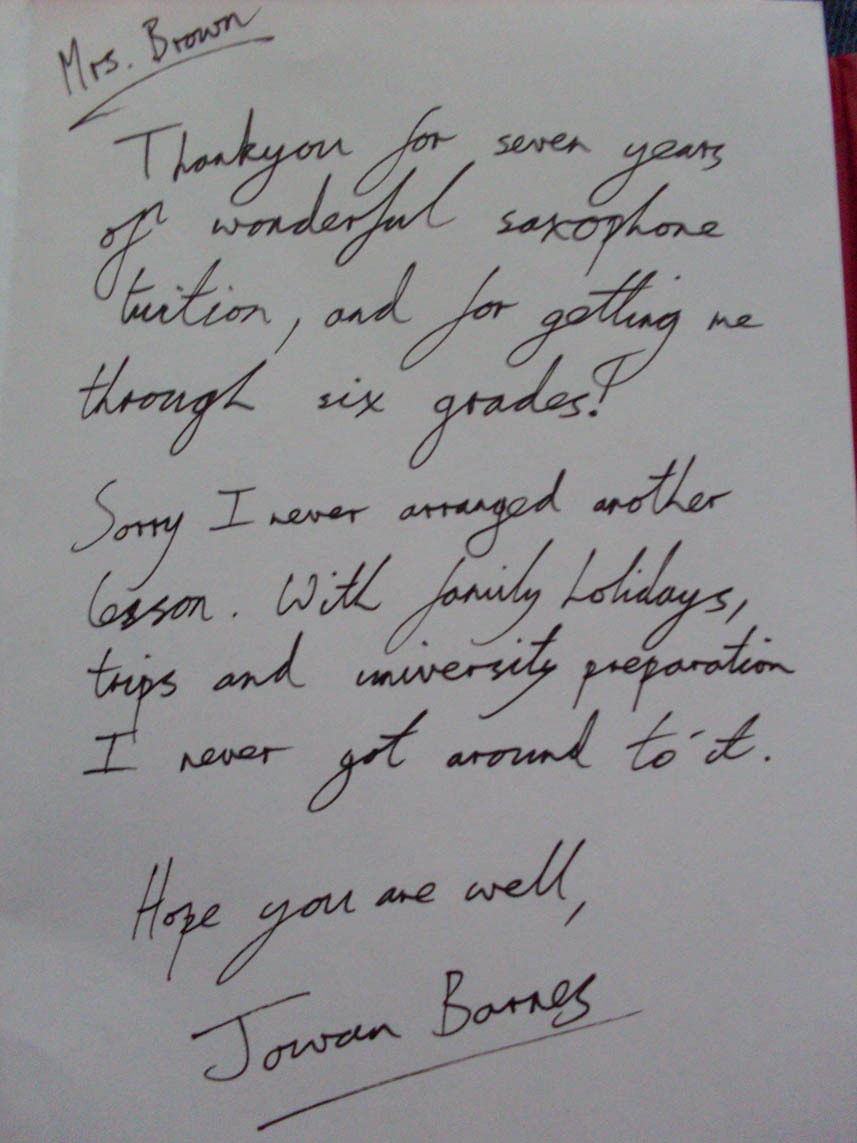 Mrs. Brown
Thankyou for seven years
of wonderful saxophone
tuition, and for getting me
through six grades!
Sorry I never arranged another
lesson. With family holidays,
trips and university preparation
I never got around to it.
Hope you are well,
Jowan Barnes